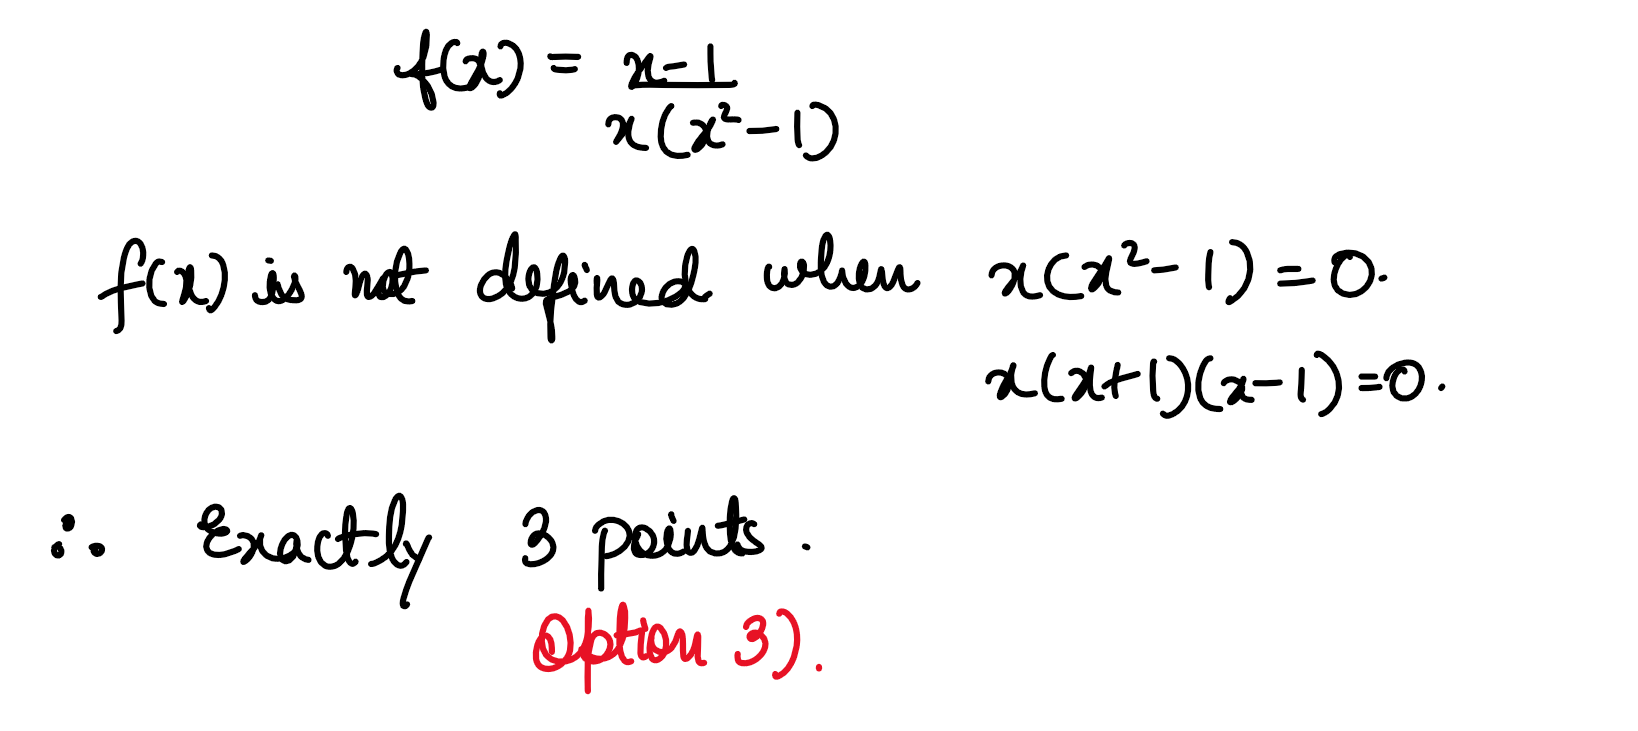 f(x) = x-1 / x(x²-1)
f(x) is not defined when x(x²-1)=0.
x(x+1)(x-1)=0.
∴ Exactly 3 points.
Option 3).